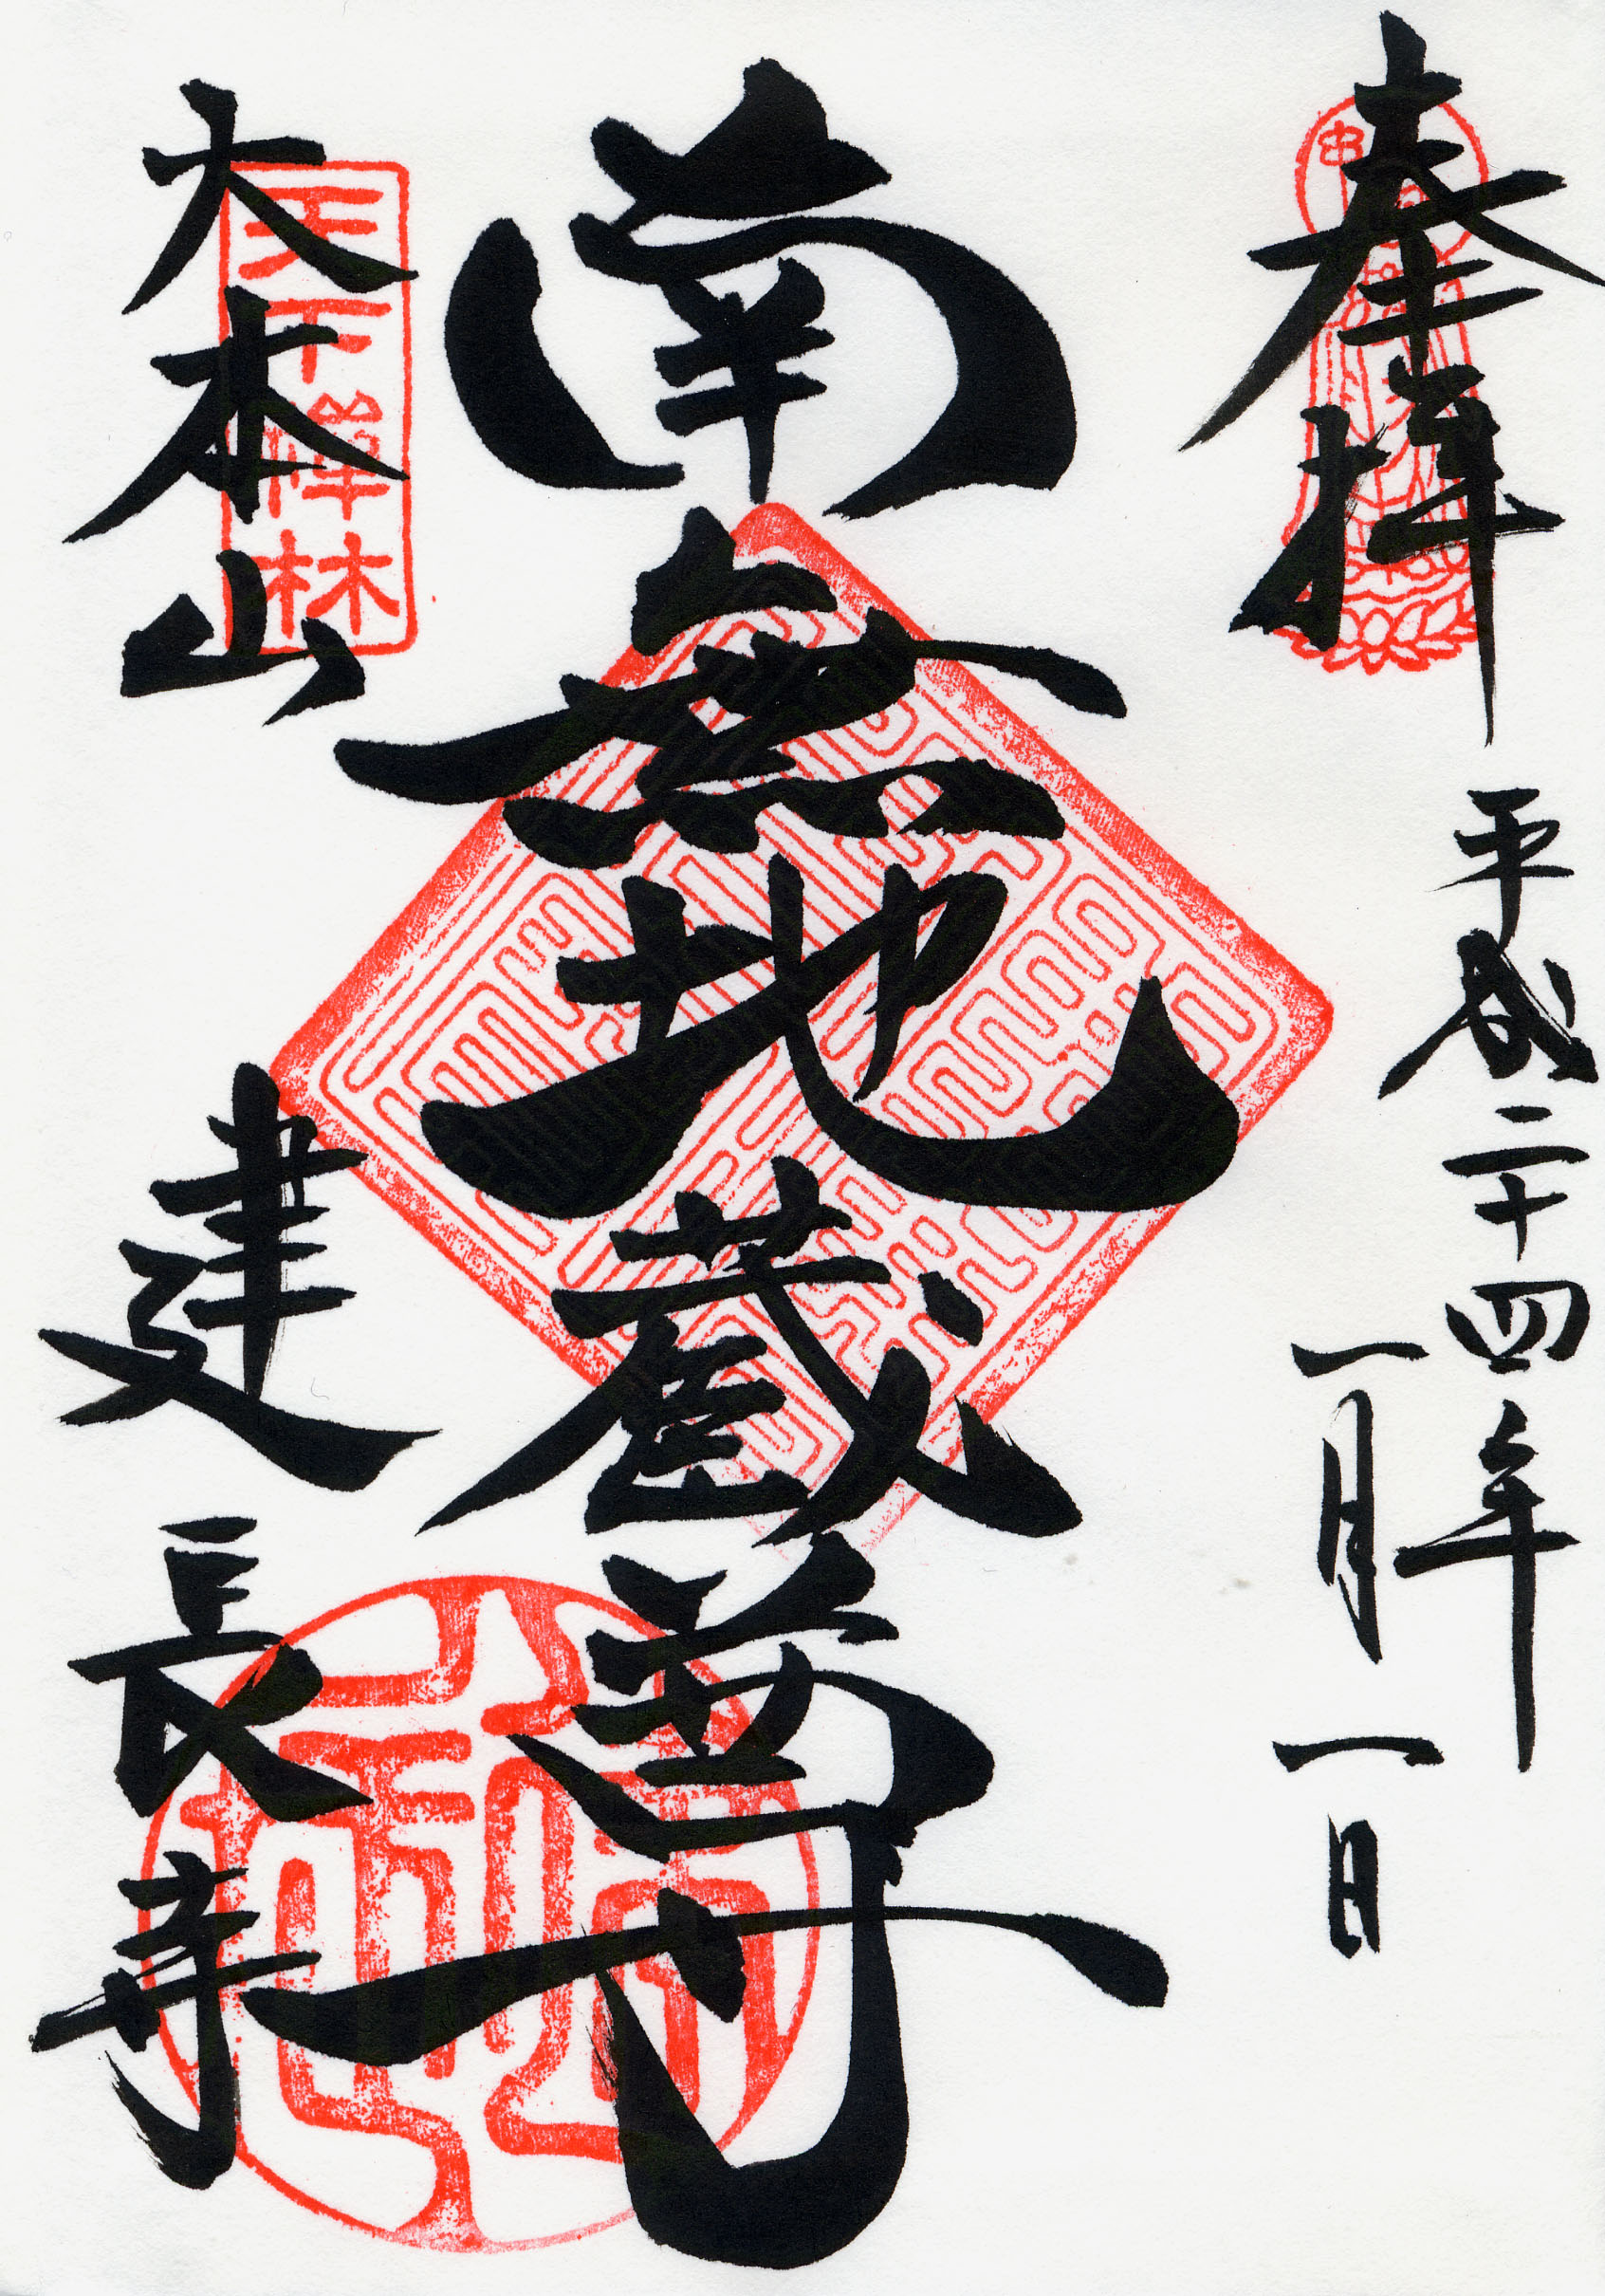 奉拝
平成二十四年
一月一日
南無地蔵尊
大本山
建長寺
天下禅林